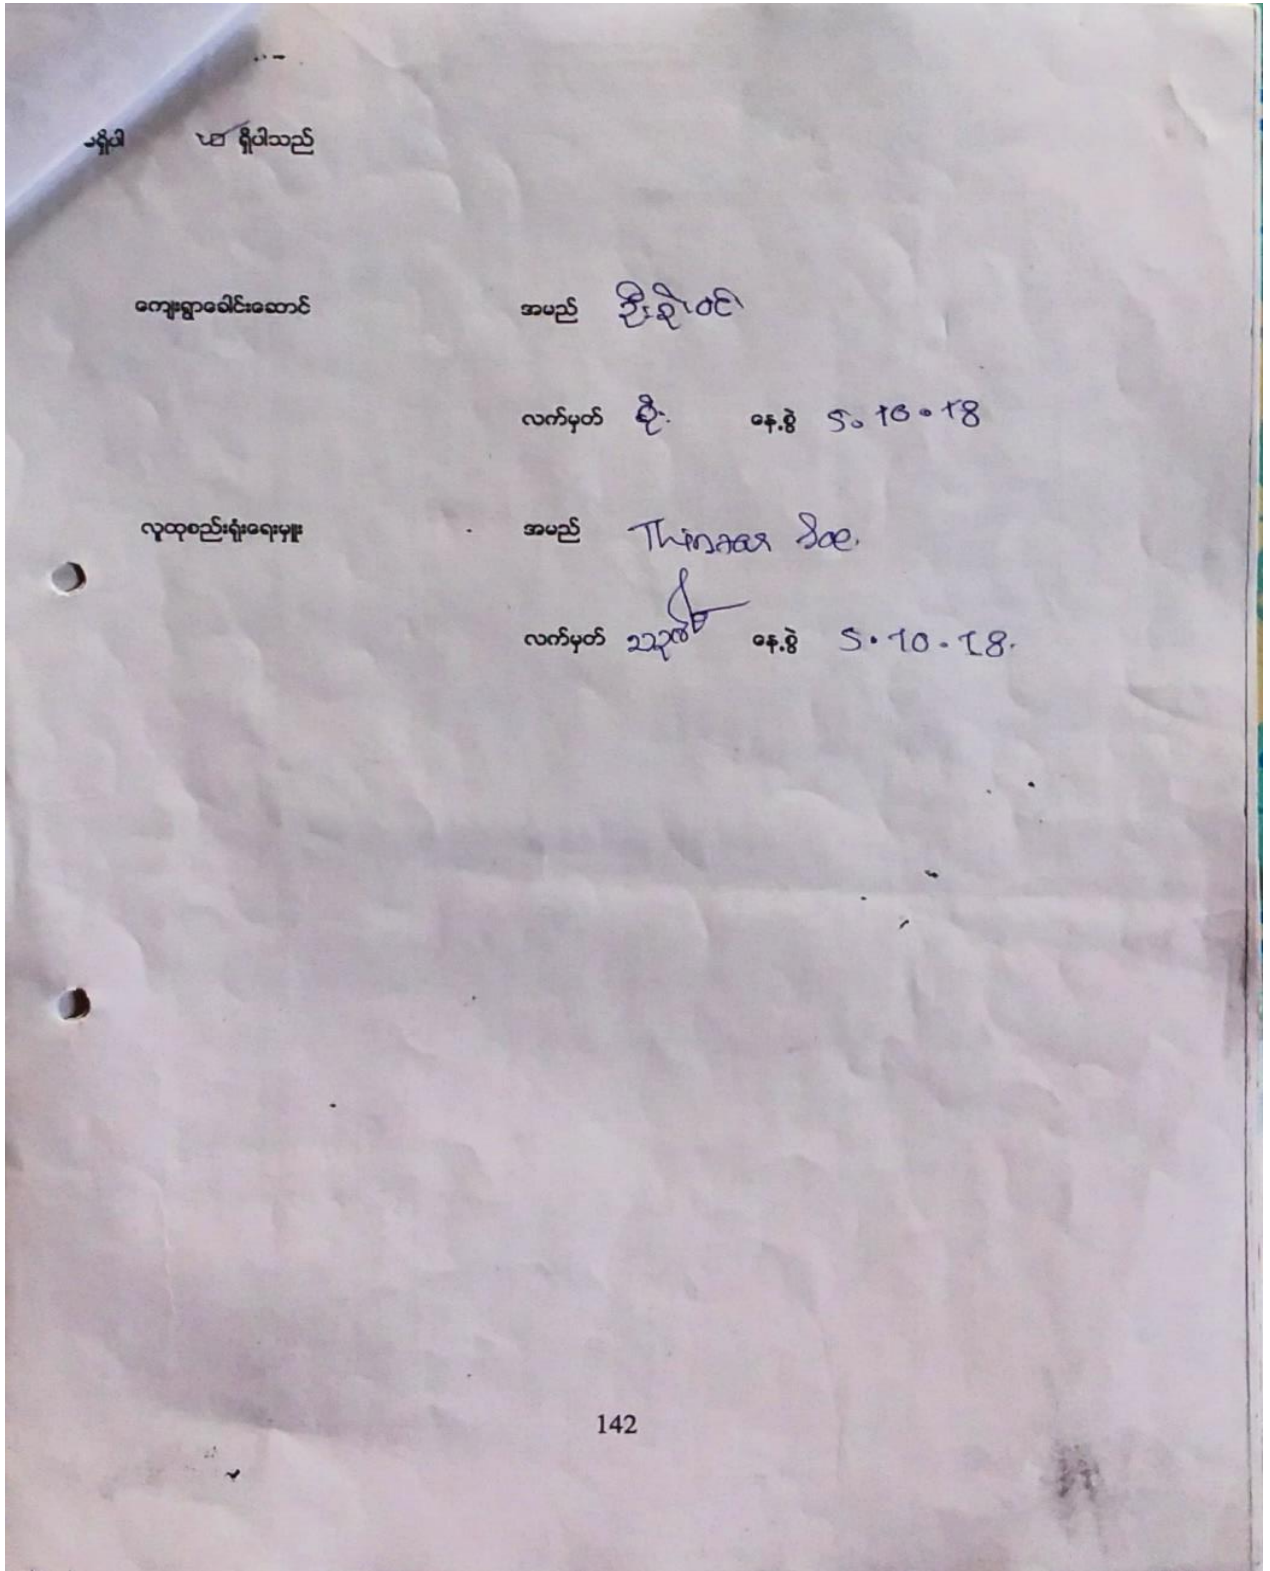 ရှိပါ ရှိပါသည်
ကျေးရွာခေါင်းဆောင် အမည် ဦးစိုးဝင်း
လက်မှတ် စိုး နေ့စွဲ 5.10.18
လူထုစည်းရုံးရေးမှူး အမည် Thinzar Soe.
လက်မှတ် နေ့စွဲ 5.10.18.
142